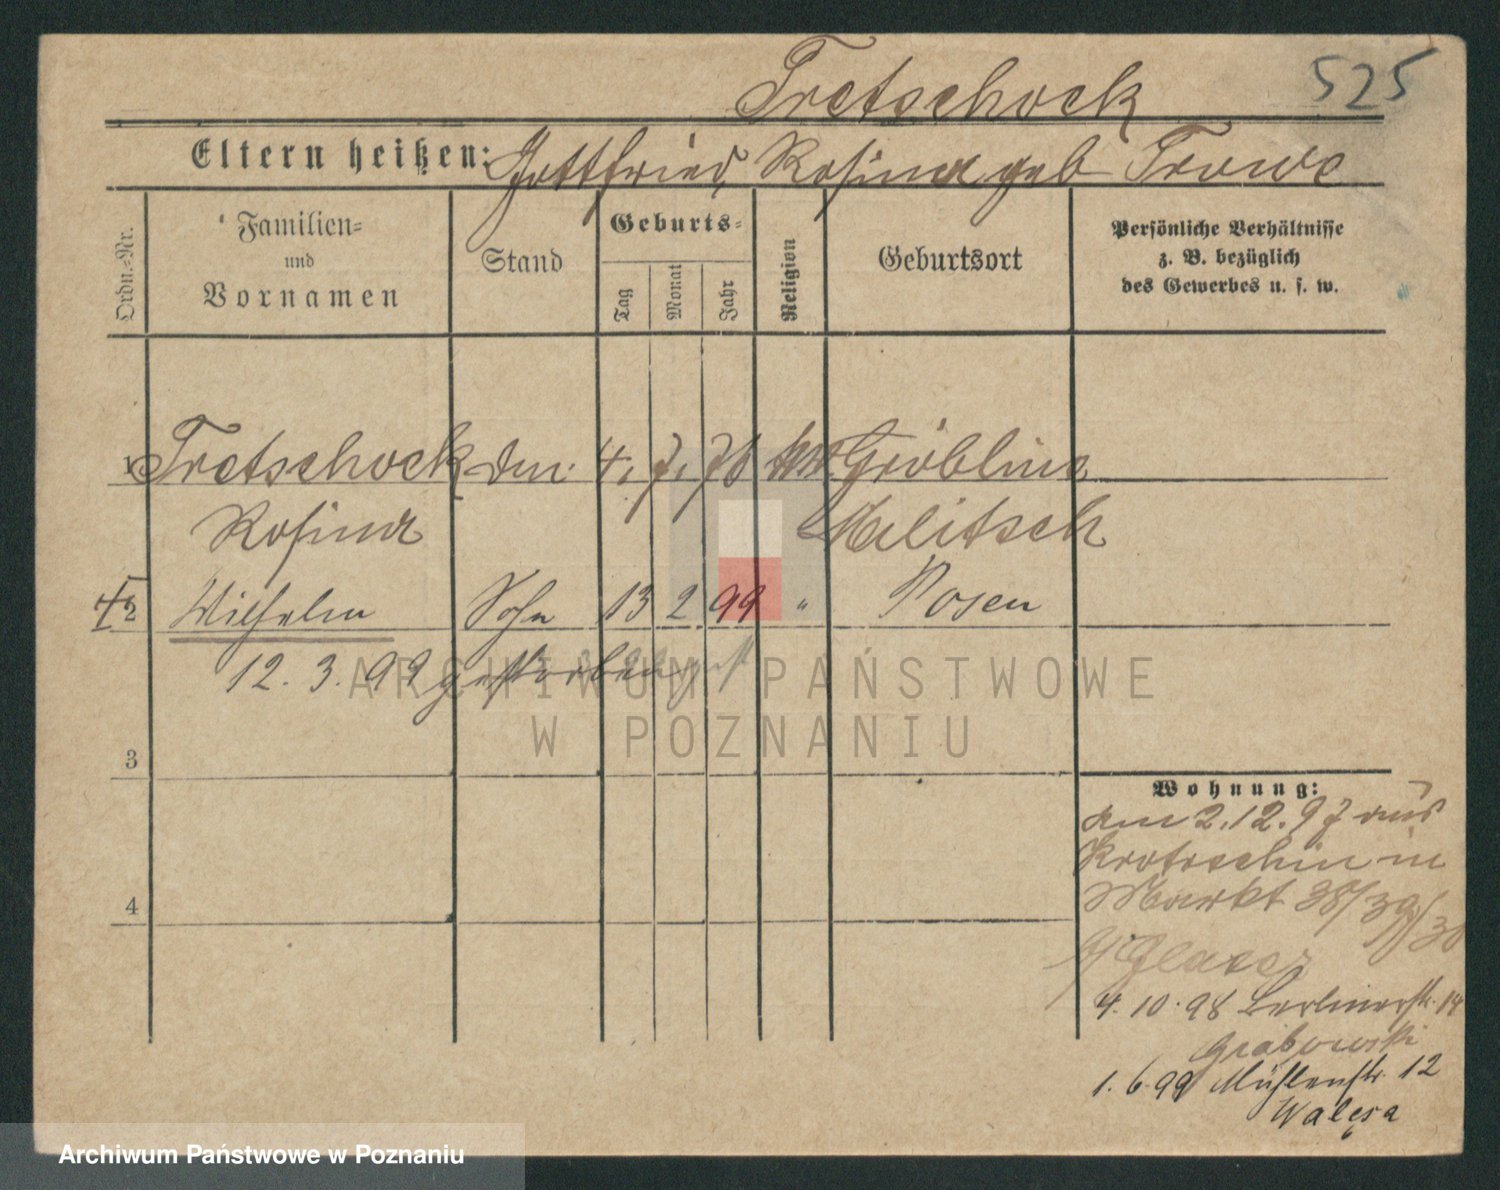 Tretschock 525
Eltern heißen: Gottfried, Rosina geb Trowe
Ordn.-Nr.
Familien-
und
Vornamen
Stand
Geburts-
Tag
Monat
Jahr
Religion
Geburtsort
Persönliche Verhältnisse
z. B. bezüglich
des Gewerbes u. s. w.
1 Tretschock 4. 7. 78 Gröbline
Rosina Melitsch
2 Wilhelm Sohn 13 2 99 " Posen
12. 3. 99 gestorben
ARCHIWUM PAŃSTWOWE
W POZNANIU
3
4
Wohnung:
am 2.12.97 aus
Krotoschin in
Markt 38/39
b/ Glaser
4. 10. 98 Berlinerstr. 14
Grabowski
1. 6. 99 Mühlenstr. 12
Walęsa
Archiwum Państwowe w Poznaniu